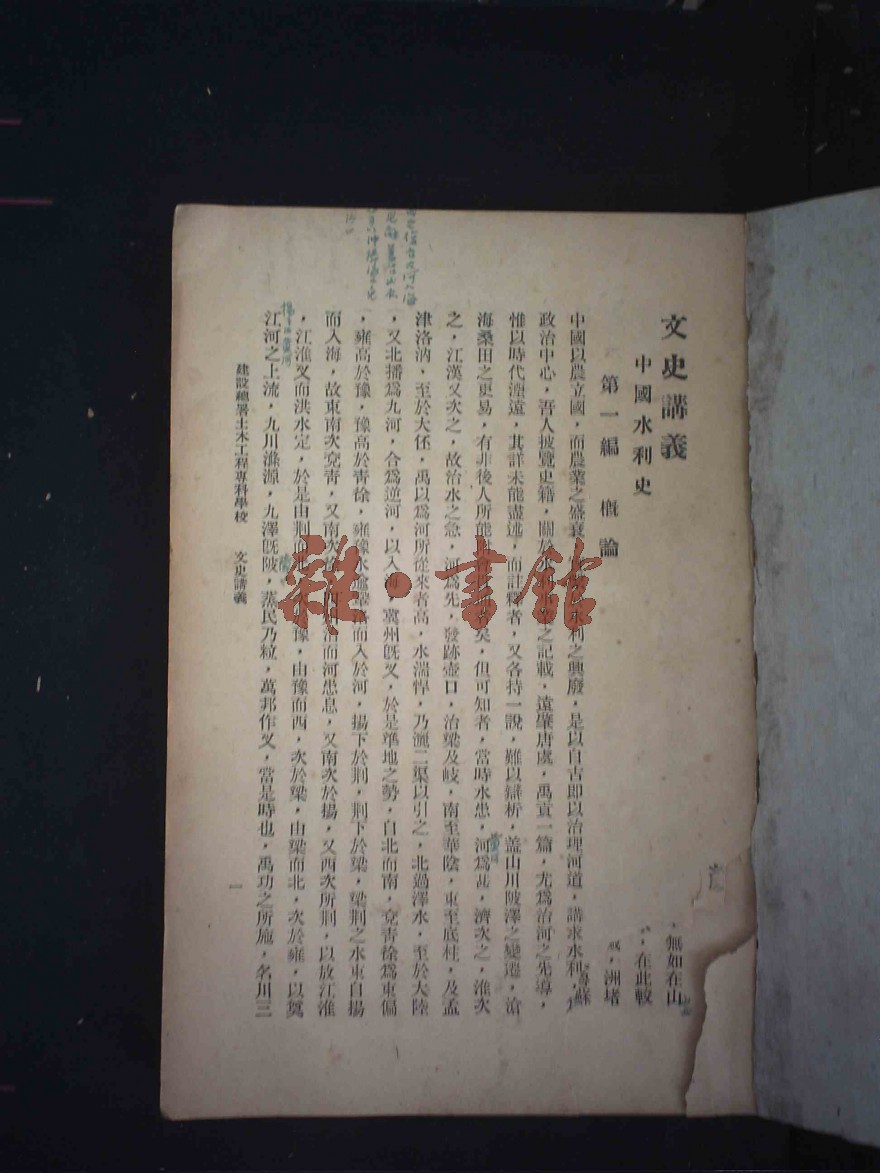 文史講義
中國水利史
第一編 概論
中國以農立國，而農業之盛衰，水利之興廢，是以自古即以治理河道，講求水利，
政治中心，吾人披覽史籍，關於之記載，遠肇唐虞，禹貢一篇，尤為治河之先導，
惟以時代湮遠，其詳未能盡述，而註釋者，又各持一說，難以辯析，蓋山川陂澤之變遷，滄
海桑田之更易，有非後人所能者矣，但可知者，當時水患，河為甚，濟次之，淮次
之，江漢又次之，故治水之急，河為先，發跡壺口，治梁及岐，南至華陰，東至底柱，及孟
津洛汭，至於大伾，禹以為河所從來者高，水湍悍，乃灑二渠以引之，北過澤水，至於大陸
，又北播為九河，合為逆河，以入海，冀州既乂，於是準地之勢，自北而南，兗青徐為東偏
，雍高於豫，豫高於青徐，雍豫水而入於河，揚下於荆，荆下於梁，梁荆之水東自揚
而入海，故東南次兗青，又南次徐，而河患息，又南次於揚，又西次所荆，以放江淮
，江淮乂而洪水定，於是由荆而北，次豫，由豫而西，次於梁，由梁而北，次於雍，以奠
江河之上流，九川滌源，九澤既陂，蒸民乃粒，萬邦作乂，當是時也，禹功之所施，名川三
建設總署土木工程專科學校 文史講義
一
，無如在山
，在此較
，洲堵
蘇
黃河
雜·書館